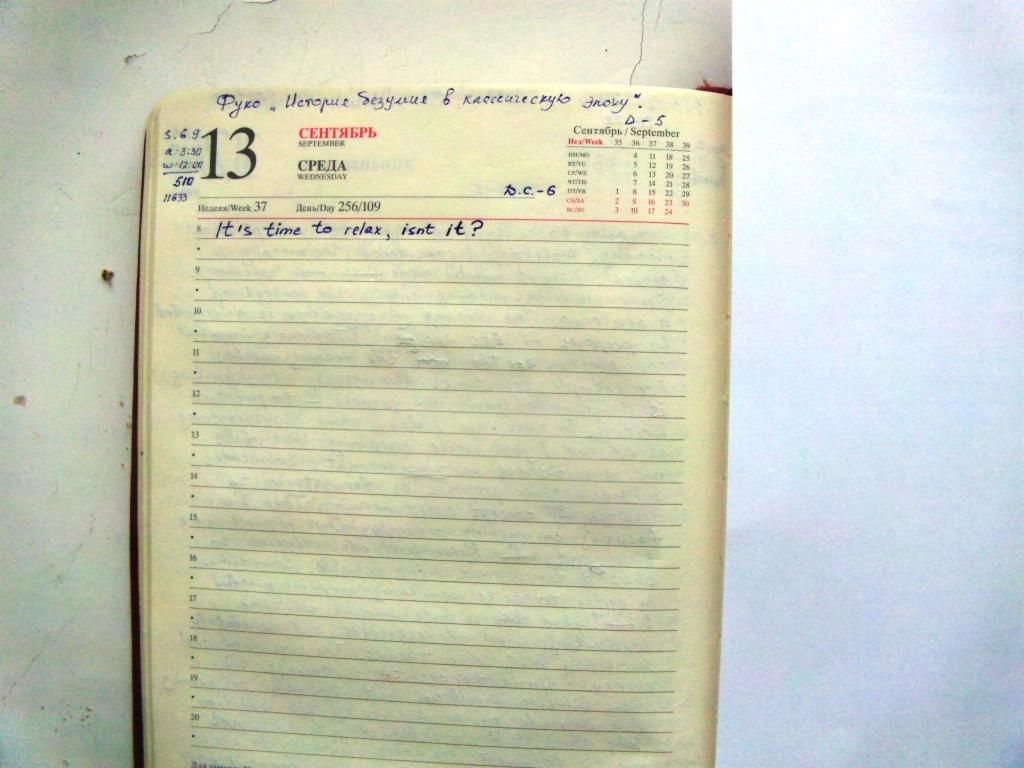 Фуко „История безумия в классическую эпоху".
D-5
s. 6.9
a: 3:30
w: 12:00
510
11633
13
СЕНТЯБРЬ
SEPTEMBER
СРЕДА
WEDNESDAY
D.C.-6
Сентябрь / September
Нед/Week 35 36 37 38 39
ПН/MO 4 11 18 25
ВТ/TU 5 12 19 26
СР/WE 6 13 20 27
ЧТ/TH 7 14 21 28
ПТ/FR 1 8 15 22 29
СБ/SA 2 9 16 23 30
ВС/SU 3 10 17 24
Неделя/Week 37 День/Day 256/109
8 It's time to relax, isnt it?
9
10
11
12
13
14
15
16
17
18
19
20